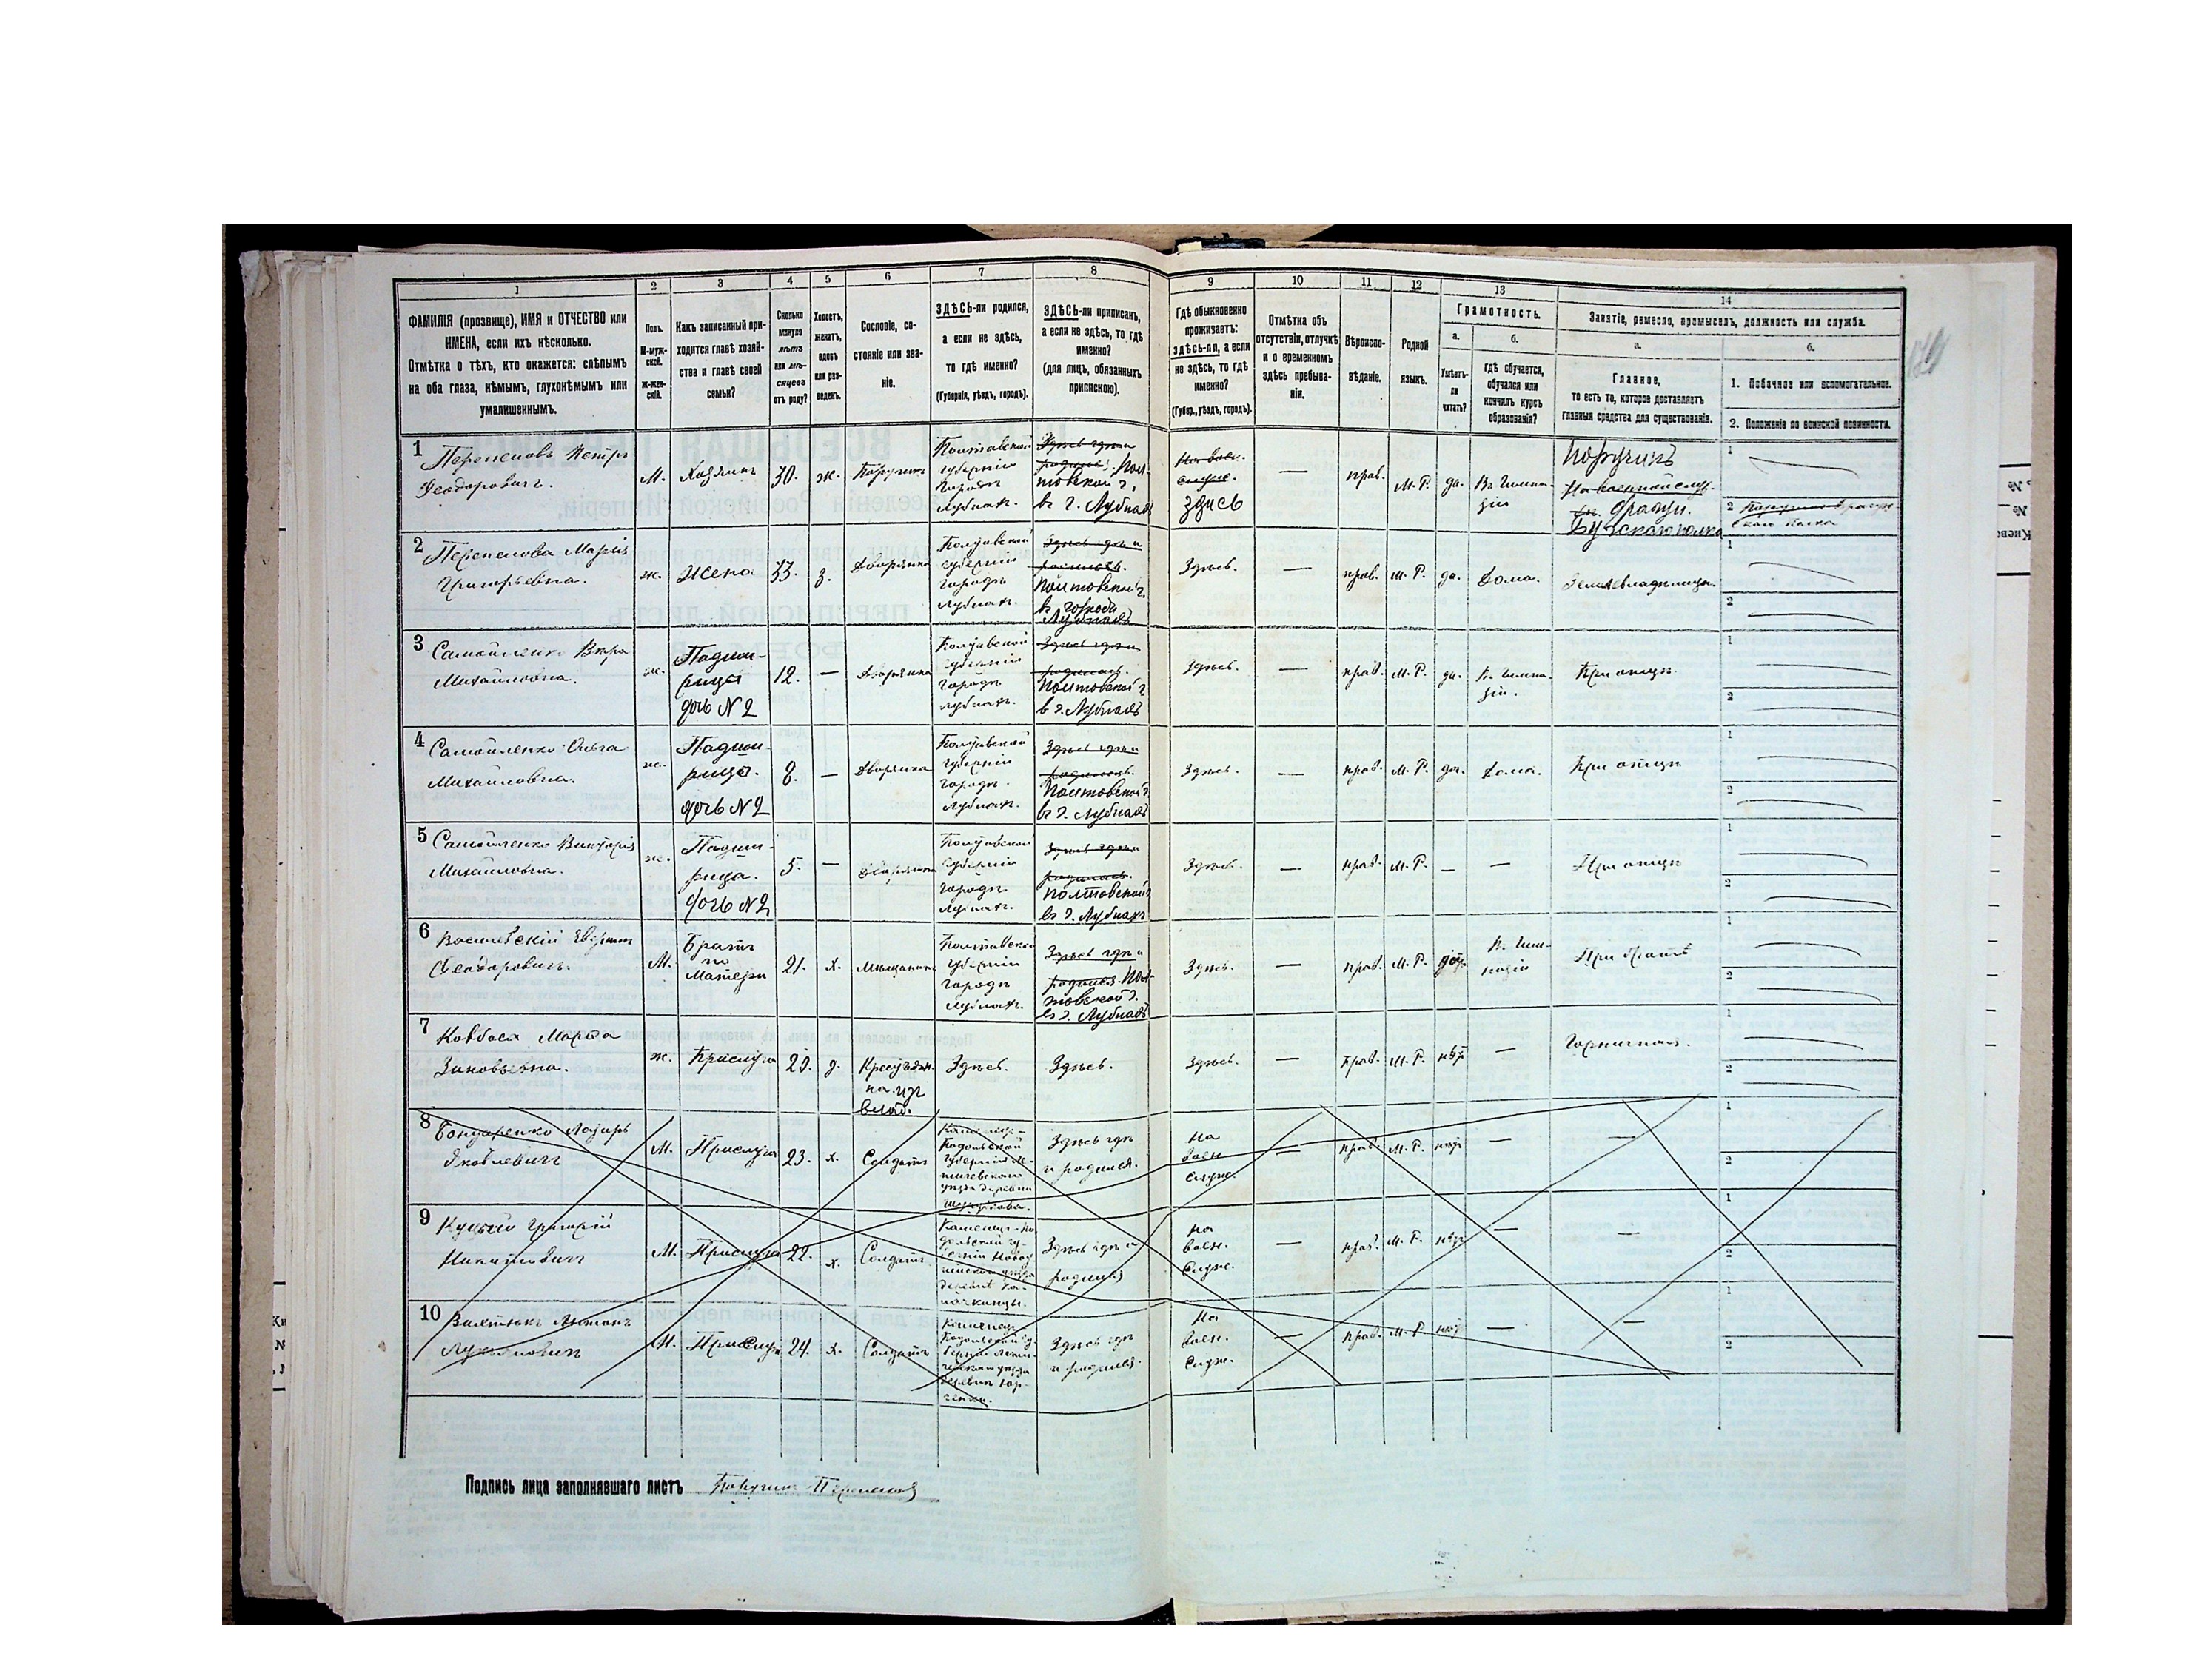 1
2
3
4
5
6
7
8
9
10
11
12
13
14
ФАМИЛІЯ (прозвище), ИМЯ и ОТЧЕСТВО или
ИМЕНА, если ихъ нѣсколько.
Отмѣтка о тѣхъ, кто окажется: слѣпымъ
на оба глаза, нѣмымъ, глухонѣмымъ или
умалишеннымъ.
Полъ.
М-муж-
ской.
ж-жен-
скій.
Какъ записанный при-
ходится главѣ хозяй-
ства и главѣ своей
семьи?
Сколько
минуло
лѣтъ
или мѣ-
сяцевъ
отъ роду?
Холостъ,
женатъ,
вдовъ
или раз-
веденъ.
Сословіе, со-
стояніе или зва-
ніе.
ЗДѢСЬ-ли родился,
а если не здѣсь,
то гдѣ именно?
(Губернія, уѣздъ, городъ).
ЗДѢСЬ-ли приписанъ,
а если не здѣсь, то гдѣ
именно?
(для лицъ, обязанныхъ
припискою).
Гдѣ обыкновенно
проживаетъ:
здѣсь-ли, а если
не здѣсь, то гдѣ
именно?
(Губер., уѣздъ, городъ).
Отмѣтка объ
отсутствіи, отлучкѣ
и о временномъ
здѣсь пребыва-
ніи.
Вѣроиспо-
вѣданіе.
Родной
языкъ.
Грамотность.
а.
Умѣетъ-
ли
читать?
б.
гдѣ обучается,
обучался или
кончилъ курсъ
образованія?
Занятіе, ремесло, промыселъ, должность или служба.
а.
Главное,
то есть то, которое доставляетъ
главныя средства для существованія.
б.
1. Побочное или вспомогательное.
2. Положеніе по воинской повинности.
1
Перепеловъ Петръ
Феодоровичъ.
М.
Хозяинъ
30.
ж.
Поручикъ
Полтавской
губерніи
городъ
Лубнахъ.
Здѣсь гдѣ и
родился. Пол-
товской г.
въ г. Лубнахъ
На воен.
служ.
Здись
—
прав.
М. Р.
да.
Въ гимна-
зіи
Поручикъ
На военной служ.
драгун.
Бугскаго полка
1
2
2
Перепелова Марія
Григорьевна.
ж.
Жена
33.
з.
Дворянка
Полтавской
губерніи
городъ
Лубнахъ.
Здѣсь гдѣ и
родилась.
Полтовской г.
въ городи
Лубнахъ
Здѣсь.
—
прав.
М. Р.
да.
Дома.
Землевладѣлица.
1
2
3
Самойленко Вѣра
Михайловна.
ж.
Падчи-
рица
дочь N 2
12.
—
Дворянка
Полтавской
губерніи
городъ
Лубнахъ.
Здѣсь гдѣ и
родилась.
Полтовской г.
в г. Лубнахъ
Здѣсь.
—
прав.
М. Р.
да.
Въ гимна-
зіи.
При отцѣ
1
2
4
Самойленко Ольга
Михайловна.
ж.
Падчи-
рица.
дочь N 2
8.
—
Дворянка
Полтавской
губерніи
городъ
Лубнахъ.
Здѣсь гдѣ и
родилась.
Полтовской г.
въ г. Лубнахъ
Здѣсь.
—
прав.
М. Р.
да.
Дома.
При отцѣ
1
2
5
Самойленко Викторія
Михайловна.
ж.
Падчи-
рица.
дочь N 2
5.
—
Дворянка
Полтавской
губерніи
городъ
Лубнахъ.
Здѣсь гдѣ и
родилась.
Полтовской г.
въ г. Лубнахъ
Здѣсь.
—
прав.
М. Р.
—
—
При отцѣ
1
2
6
Феодоровичъ.
М.
Братъ
по
Матери
21.
х.
Мѣщанинъ
Полтавской
губерніи
городъ
Лубнахъ.
Здѣсь гдѣ и
родился. Пол-
товской г.
въ г. Лубнахъ
Здѣсь.
—
прав.
М. Р.
Въ гим-
назіи
При братѣ
1
2
7
Ковбаса Марфа
Зиновьевна.
ж.
Прислуга
д.
Крестьян-
ка изъ
влад.
Здѣсь.
Здѣсь.
Здѣсь.
—
прав.
М. Р.
нѣт
—
Горничная.
1
2
8
Бондаренко Лазарь
Яковлевичъ
М.
Прислуга
23.
х.
Солдатъ
Подольской
губерніи
Здѣсь гдѣ
и родился.
На
воен.
служ.
—
прав.
М. Р.
нѣт
—
—
1
2
9
Куцый Григорій
Никитовичъ
М.
Прислуга
22.
х.
Солдатъ
Каменец-По
дольской гу-
Здѣсь гдѣ и
родился
На
воен.
служ.
—
прав.
М. Р.
нѣт
—
—
1
2
10
Антонъ
Лукьяновичъ
М.
Прислуга
24.
х.
Солдатъ
Каменец
Подольской гу
Здѣсь гдѣ
и родился.
На
воен.
служ.
—
прав.
М. Р.
нѣт
—
—
1
2
Подпись лица заполнявшаго листъ Поручикъ Перепеловъ